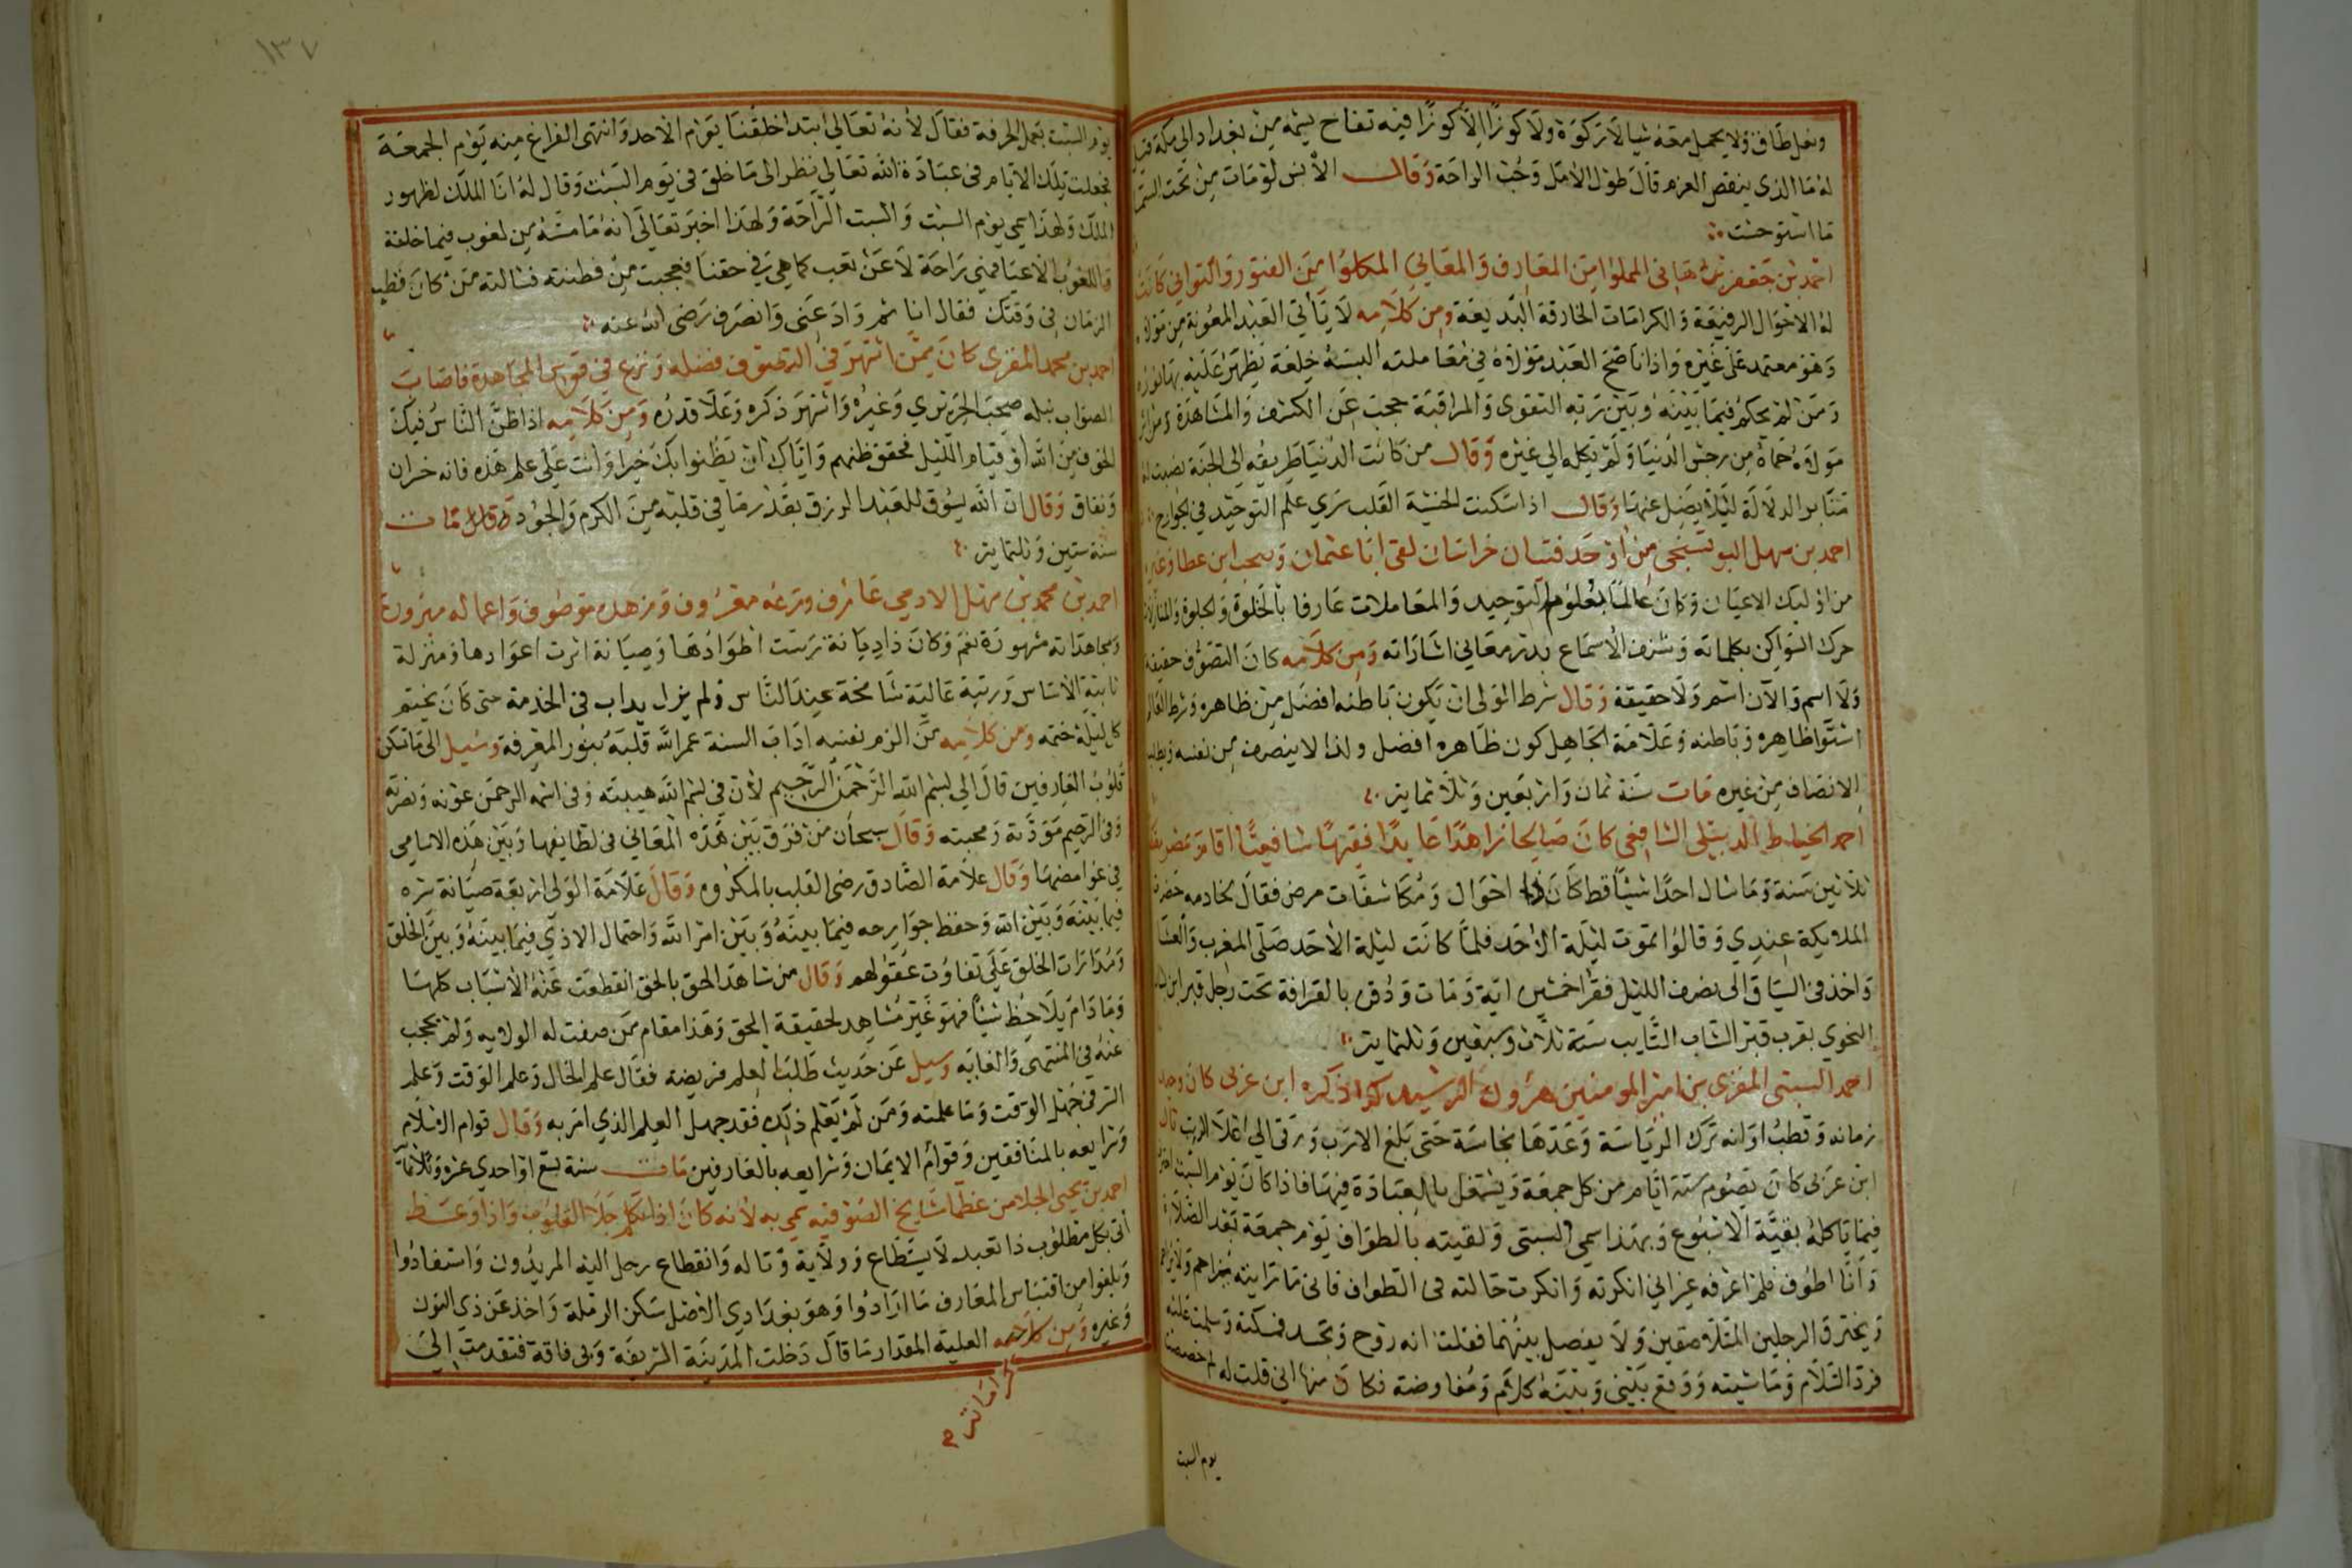 ونعل طاق ولا يحمل معه شيا لا ركوة ولا كوزا الا كوزا فيه تفاح يشمه من بغداد الى مكة
له ما الذى ينقص العزم قال طول الامل وحب الراحة وقال الانس لو مات من تحت السما
ما استوحشت
احمد بن جعفر بن هانى المملوا من المعارف والمعالي المكلوا من الفتور والتواني كانت
له الاحوال الرفيعة والكرامات الخارقة البديعة ومن كلامه لا يأتي العبد المعونة من مولاه
وهو معتمد على غيره واذا ناصح العبد مولاه في معاملته البسه خلعة يظهر عليه بها
ومن لم يحكم فيما بينه وبين ربه التقوى والمراقبة حجب عن الكشف والمشاهدة
مولاه حماه من رجس الدنيا ولم يكله الي غيره وقال من كانت الدنيا طريقه الى الجنة نصبت له
منابر الدلالة ليلا يضل عنها وقال اذا سكنت الخشية القلب سري علم التوحيد في الجوارح
احمد بن سهل البوشنجى من اوحد فتيان خراسان لقى ابا عثمان وصحب ابن عطا وغيره
من اوليك الاعيان وكان عالما بعلوم التوحيد والمعاملات عارفا بالخلوة والجلوة والمنازلات
حرك السواكن بكلماته وشنف الاسماع بدرر معاني اشاراته ومن كلامه كان التصوف حقيقة
ولا اسم والآن اسم ولا حقيقة وقال شرط الولى ان يكون باطنه افضل من ظاهره وشرط العالم
استوا ظاهره وباطنه وعلامة الجاهل كون ظاهره افضل ولذا لا ينصف من نفسه ويطلب
الانصاف من غيره مات سنة ثمان واربعين وثلاثماية
احمد الخياط الدبيلى الشافعى كان صالحا زاهدا عابدا فقيها شافعيا اقام بمصر نيفا
ثلاثين سنة وما سال احدا شيئا قط كان ذا احوال ومكاشفات مرض فقال لخادمه حضرت
الملايكة عندي وقالوا تموت ليلة الاحد فلما كانت ليلة الاحد صلى المغرب والعشا
واخذ فى السياق الى نصف الليل فقرا خمسين اية ومات ودفن بالقرافة تحت رجل قبر ابن
النحوي بقرب قبر الشاب التايب سنة ثلاث وسبعين وثلثماية
احمد السبتى المغزى بن امير المومنين هرون الرشيد كذا ذكره ابن عربى كان وحيد
زمانه وقطب اوانه ترك الرياسة وعدها نجاسة حتى بلغ الارب ورقى الي اعلا الرتب قال
ابن عربى كان يصوم ستة ايام من كل جمعة ويشتغل بالعبادة فيها فاذا كان يوم السبت احترف
فيما ياكله بقية الاسبوع وبهذا سمى السبتى ولقيته بالطواف يوم جمعة بعد الصلاة
وانا اطوف فلم اعرفه غير اني انكرته وانكرت حالته فى الطواف فانى ما رايته يزاحم ولا يزاحم
ويخترق الرجلين المتلاصقين ولا يفصل بينهما فقلت انه روح وتجسد فمسكته وسلمت عليه
فرد السلام وماشيته ووقع بيني وبينه كلام ومفاوضة فكان منها اني قلت له لم خصصت
يوم السبت
١٣٧
يوم السبت بعمل الحرفة فقال لأنه تعالي ابتدا خلقنا يوم الاحد وانتهى الفراغ منه يوم الجمعة
فجعلت تلك الايام فى عبادة الله تعالي نظر الى ما خلق فى يوم السبت وقال له انا الملك لظهور
الملك ولهذا سمى يوم السبت والسبت الراحة ولهذا اخبر تعالى انه ما مسه من لغوب فيما خلقه
واللغوب الاعيا فهي راحة لا عن تعب كما هي في حقنا فعجبت من فطنته فسالته من كان قطب
الزمان فى وقتك فقال انا ثم وادعنى وانصرف رضى الله عنه
احمد بن محمد المغزى كان ممن اشتهر في التصوف فضله ونزع فى قوس المجاهدة فاصاب
الصواب نبله صحب الجريري وغيره واشتهر ذكره وعلا قدره ومن كلامه اذا ظن الناس فيك
الخوف من الله او قيام الليل فحقق ظنهم واياك ان يظنوا بك خيرا وانت علي علم هذه فانه خسران
ونفاق وقال ان الله يسوق للعبد الرزق بقدر ما في قلبه من الكرم والجود مات
سنة ستين وثلثماية
احمد بن محمد بن سهل الادمي عارف ورعه معروف وزهده موصوف واعماله مبرورة
ومجاهداته مشهورة نعم وكان ذا ديانة رست اطوادها وصيانة اثرت اعوادها ومنزلة
ثابتة الاساس ورتبة عالية شامخة عند الناس ولم يزل يداب فى الخدمة حتى كان يختم
كل ليلة ختمه ومن كلامه من الزم نفسه اداب السنة عمر الله قلبه بنور المعرفة وسيل الى ما تسكن
قلوب العارفين قال الي بسم الله الرحمن الرحيم لأن في بسم الله هيبته وفى اسمه الرحمن عونه ونصرته
وفى الرحيم مودته ومحبته وقال سبحان من فرق بين هذه المعاني فى لطايفها وبين هذه الاسامى
في غوامضها وقال علامة الصادق رضى القلب بالمكروه وقال علامة الولى اربعة صيانة سره
فيما بينه وبين الله وحفظ جوارحه فيما بينه وبين امر الله واحتمال الاذي فيما بينه وبين الخلق
ومداراة الخلق على تفاوت عقولهم وقال من شاهد الحق بالحق انقطعت عنه الاسباب كلها
وما دام يلاحظ شيئا فهو غير مشاهد لحقيقة الحق وهذا مقام من صفت له الولايه ولم يحجب
عنه فى المنتهى والغايه وسيل عن حديث طلب العلم فريضه فقال علم الحال وعلم الوقت وعلم
السر فمن جهل الوقت وما علمته ومن لم يعلم ذلك فقد جهل العلم الذي امر به وقال قوام الاسلام
وشرايعه بالمنافقين وقوام الايمان وشرايعه بالعارفين مات سنة تسع او احدي عشر وثلاثماية
احمد بن يحيى الجلا من عظما مشايخ الصوفيه سمى به لأنه كان اذا تكلم جلا القلوب واذا وعظ
أتى بكل مطلوب ذا تعبد لا يستطاع وولاية وتاله وانقطاع رحل اليه المريدون واستفادوا
وبلغوا من اقتباس المعارف ما ارادوا وهو بغدادي الاصل سكن الرملة واخذ عن ذي النون
وغيره ومن كلامه العلية المقدار ما قال دخلت المدينة الشريفة وبى فاقة فتقدمت الى
كراماته